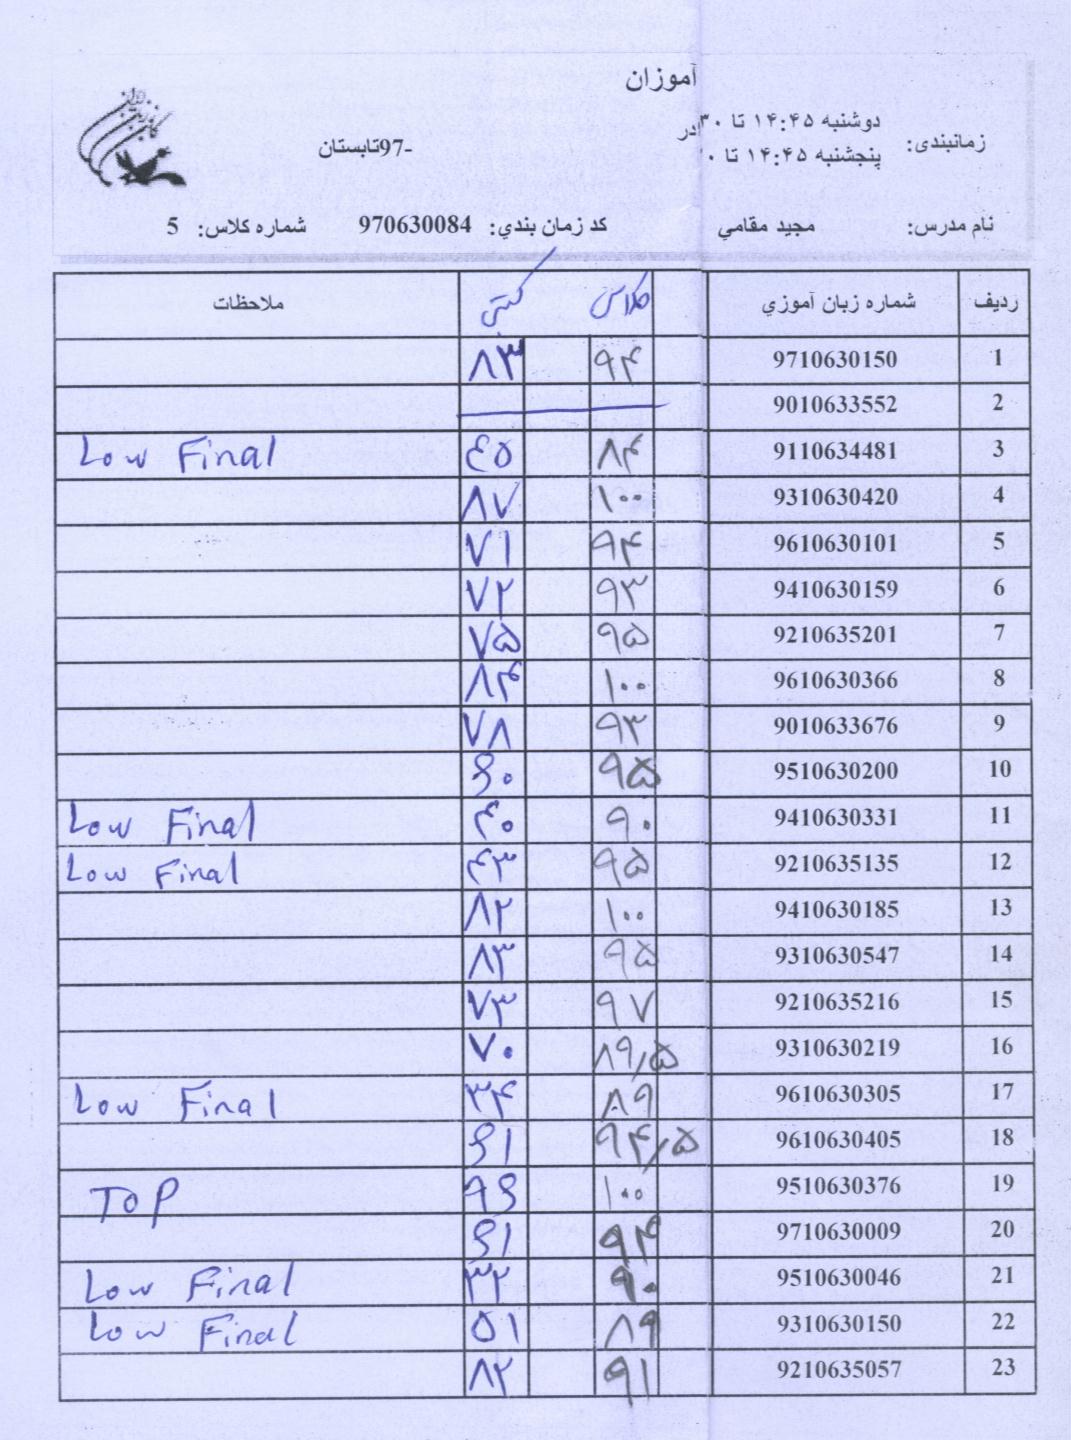 آموزان
زمانبندی: دوشنبه ۱۴:۴۵ تا ۳۰
در
پنجشنبه ۱۴:۴۵ تا ۰
-97تابستان
نام مدرس: مجيد مقامي کد زمان بندي: 970630084 شماره کلاس: 5
ردیف شماره زبان آموزي کلاس کتبی ملاحظات
1 9710630150 ۹۴ ۸۳
2 9010633552
3 9110634481 ۸۴ ٤۵ Low Final
4 9310630420 ۱۰۰ ۸۷
5 9610630101 ۹۴ ۷۱
6 9410630159 ۹۳ ۷۲
7 9210635201 ۹۵ ۷۵
8 9610630366 ۱۰۰ ۸۴
9 9010633676 ۹۳ ۷۸
10 9510630200 ۹۵ ۶۰
11 9410630331 ۹۰ ٤۰ Low Final
12 9210635135 ۹۵ ٤۳ Low Final
13 9410630185 ۱۰۰ ۸۲
14 9310630547 ۹۵ ۸۳
15 9210635216 ۹۷ ۷۳
16 9310630219 ۸۹٫۵ ۷۰
17 9610630305 ۸۹ ۳۴ Low Final
18 9610630405 ۹۴٫۵ ۶۱
19 9510630376 ۱۰۰ ۹۶ TOP
20 9710630009 ۹۴ ۶۱
21 9510630046 ۹۰ ۳۲ Low Final
22 9310630150 ۸۹ ۵۱ Low Final
23 9210635057 ۹۱ ۸۲